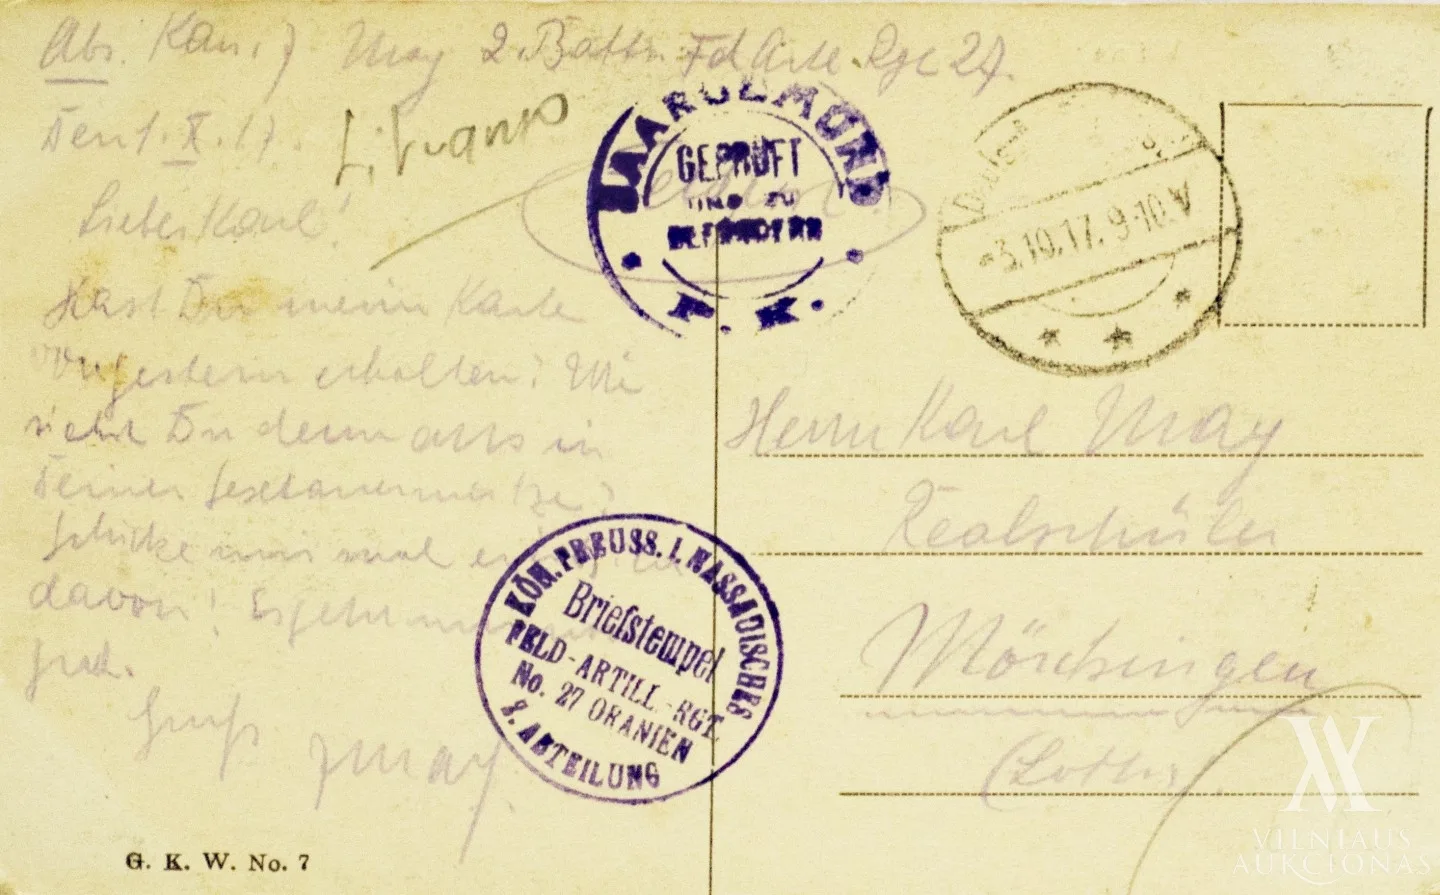 Abs. Kan. J May 2. Battr. Fd Arte. Rgt 27.
Den 1. X. 17.
Lieber Karl!
Hast Du meine Karte
vorgestern erhalten? Wie
siehst Du denn aus in
Deiner Sextanermütze?
Schicke mir mal ein
davon! Es geht mir
gut.
Gruß
JMay.
G. K. W. No. 7
SAARGEMÜND
GEPRÜFT
UND ZU
BEFÖRDERN
P. K.
3.10.17. 9-10.V
KÖN. PREUSS. 1. NASSAUISCHES
Briefstempel
FELD-ARTILL.-RGT.
No. 27 ORANIEN
2. ABTEILUNG
Herrn Karl May
Realschüler
Mörchingen
(Lothr.)
VILNIAUS
AUKCIONAS